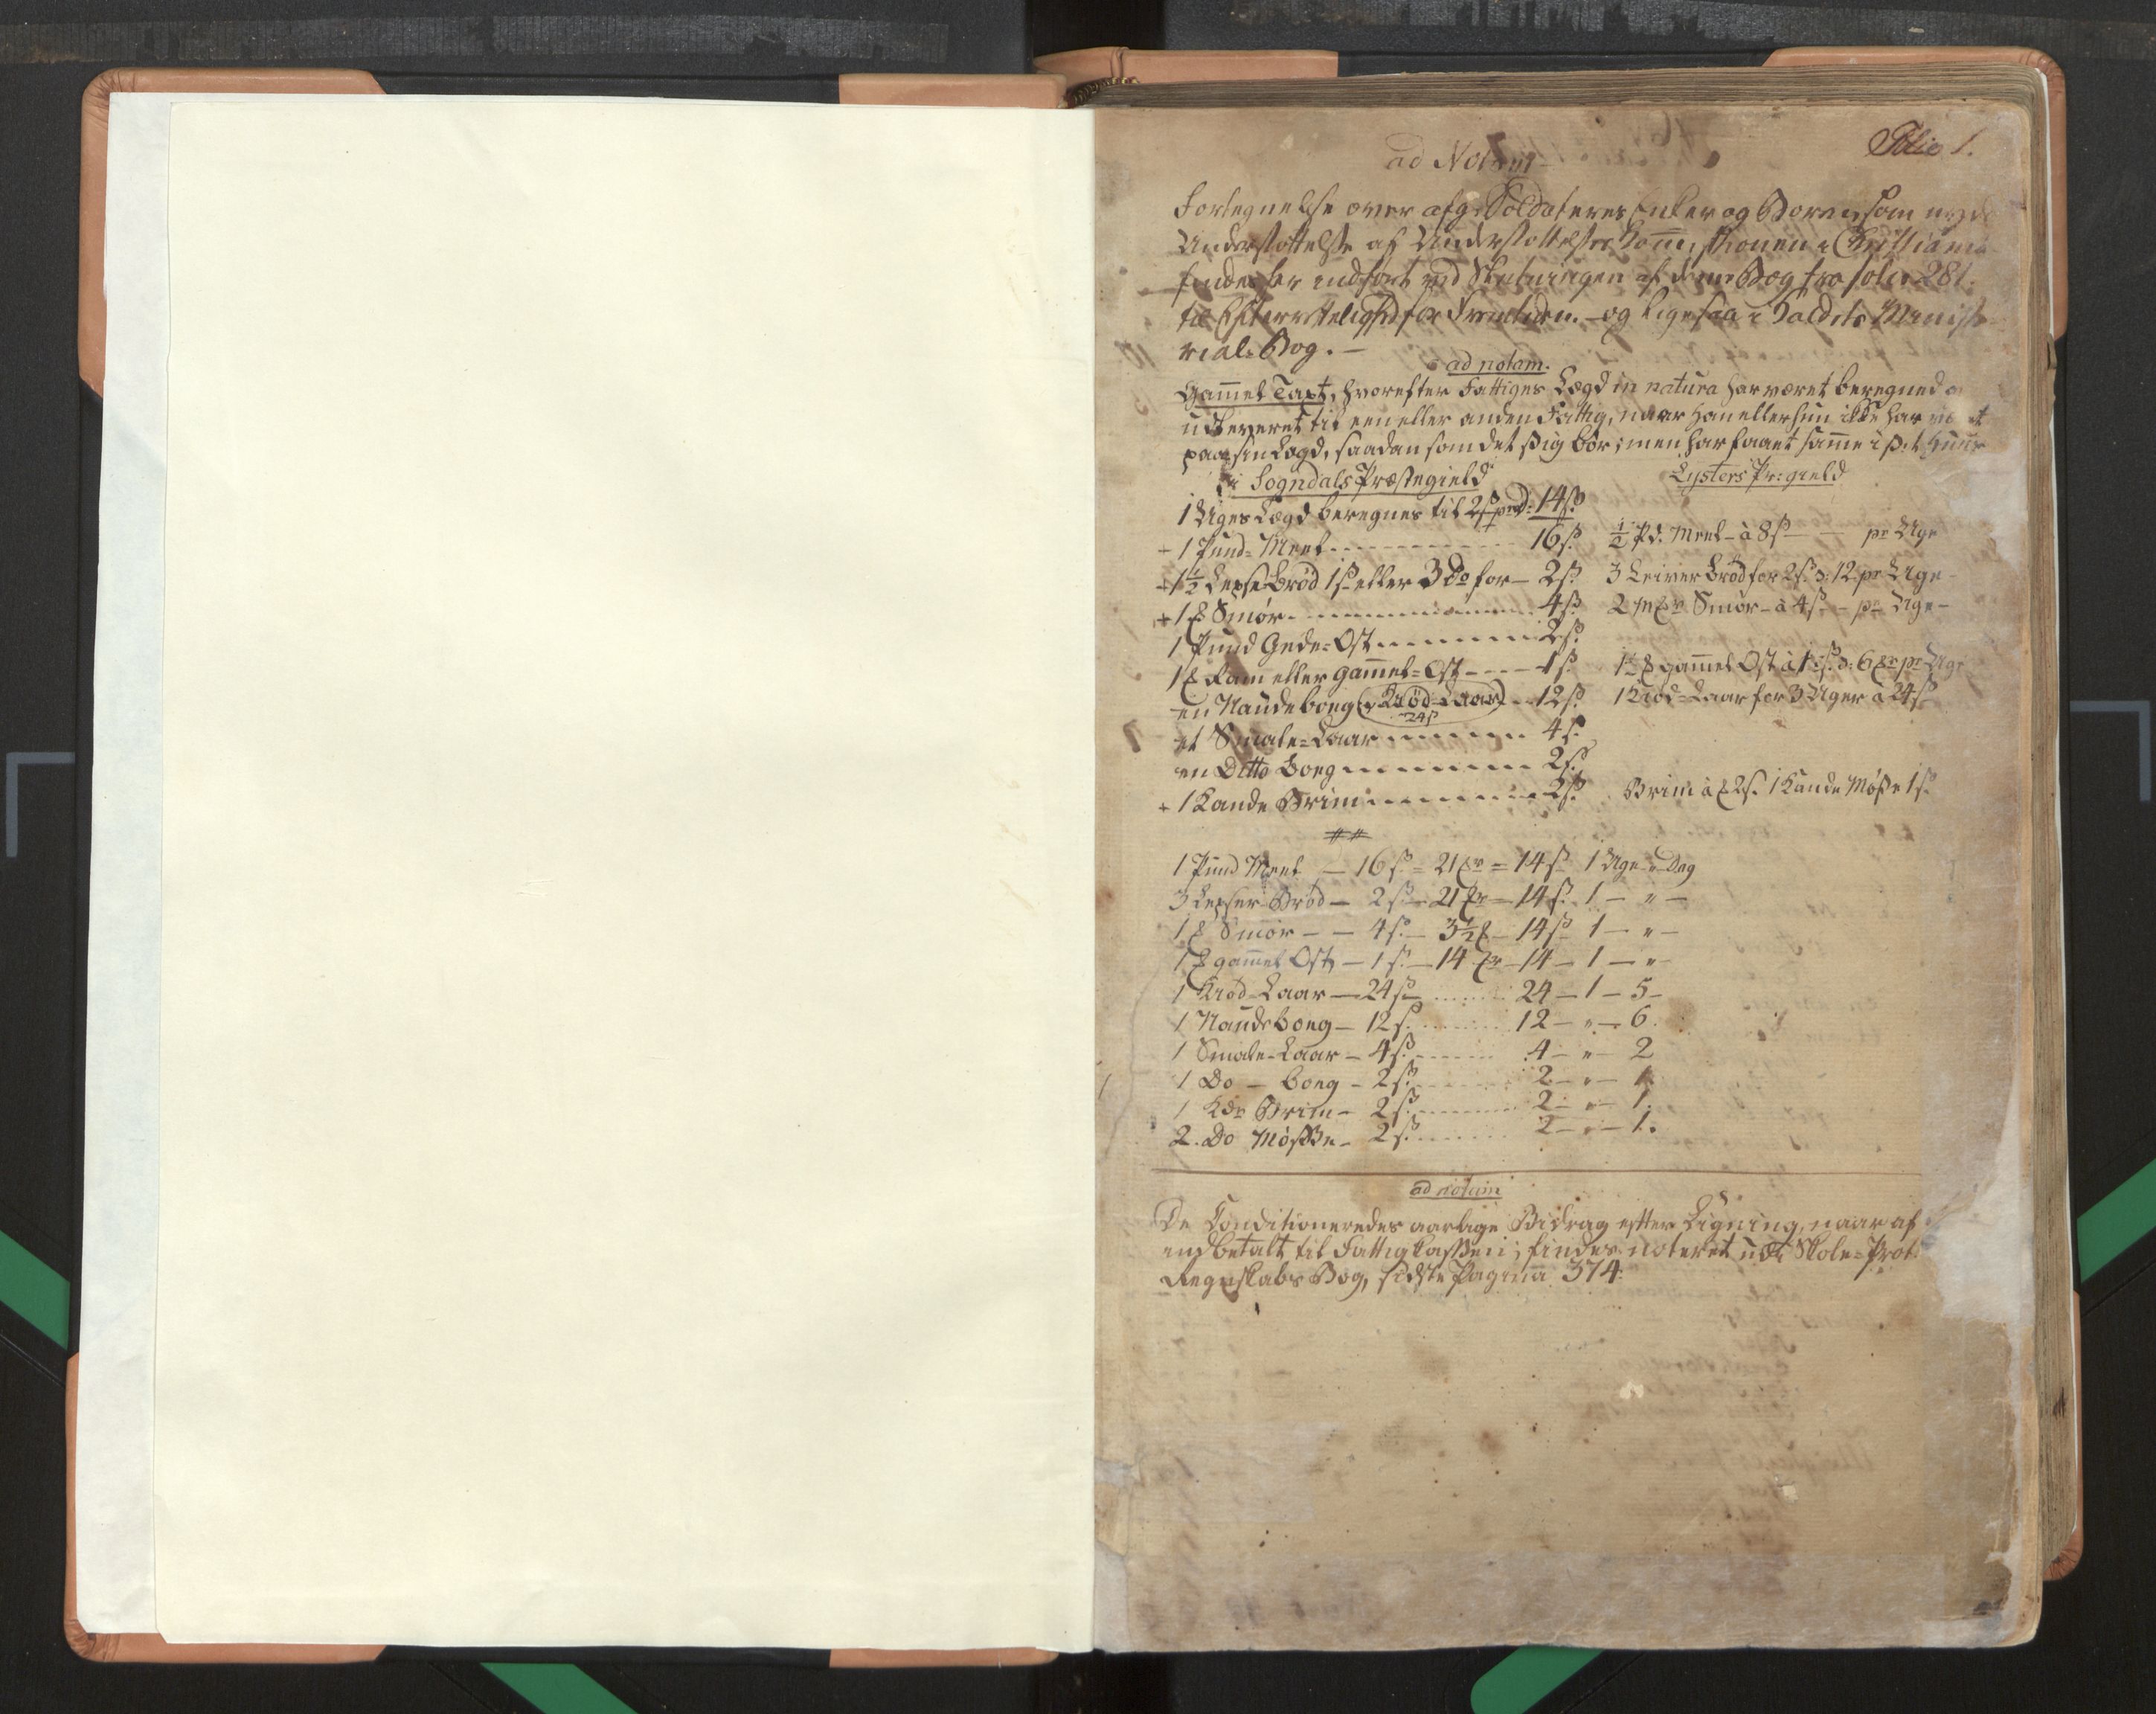 Folio 1.
ad Notam
Fortegnelse over afg: Soldaters Enker og Børn, som nyde
Understøttelse af Understøttelses Com̅issionen i Christiania
findes her indført ved Slutningen af denne Bog fra folio 281.
til Efterrettelighed for Fremtiden. - og ligesaa i Kaldets Ministe
rial-Bog. -
ad notam.
Gam̅el Taxt, hvorefter Fattiges Lægd in natura har været beregned
udleveret til een eller anden Fattig, naar han eller hun ikke har
paa sin Lægd, saadan som det sig bør; men har faaet sam̅e i
i Sogndals Præstegield
Lysters Pr: gield
1 Uges Lægd beregnes til 2ß pr d: 14ß.
+ 1 Pund Meel - - - 16ß. ½ Pd. Meel - à 8ß - pr Uge
+ 1½ Lepse-Brød 1ß eller 3 Do for - 2ß. 3 Leiver Brød for 2ß. ɔ: 12 pr Uge -
+ 1 ℔ Smør - - - 4ß. 2 Smør - à 4ß - pr Uge -
1 Pund Gede-Ost - - - 2ß.
1 ℔ eller gam̅el-Ost - - - 1ß. 1 ℔ gam̅el Ost à 1ß. ɔ: 6 pr Uge
en Naudebong (1 Kiød-Laar 24ß) - - 12ß. 1 Kiød-Laar for 3 Uger à 24ß
et Smale-Laar - - - 4ß.
en Ditto Bong - - - 2ß.
+ 1 Kande Brim - - - 2ß. Brim à 2ß. 1 Kande Møße 1ß.
1 Pund Meel - 16ß. = 21 = 14ß 1 Uge " Dag
3 Lepser Brød - 2ß - 21 - 14ß. 1 - " -
1 ℔ Smør - - 4ß. - 3½ ℔ - 14ß 1 - " -
1 ℔ gam̅el Ost - 1ß. - 14 - 14 - 1 - " -
1 Kiød-Laar - 24ß - - - 24 - 1 - 5 -
1 Naudebong - 12ß. - - - 12 - " - 6.
1 Smale-Laar - 4ß. - - - 4 - " - 2
1 Do - bong - 2ß. - - - 2 - " - 1.
1 Kde Brim - 2ß. - - - 2 - " - 1.
2. Do Møßse - 2ß. - - - 2 - " - 1.
ad notam
De Conditioneredes aarlige Bidrag efter Ligning, naar af
indbetalt til Fattigkaßen, findes noteret udi Skole-Prot
Regnskabs Bog, sidste Pagina 374.